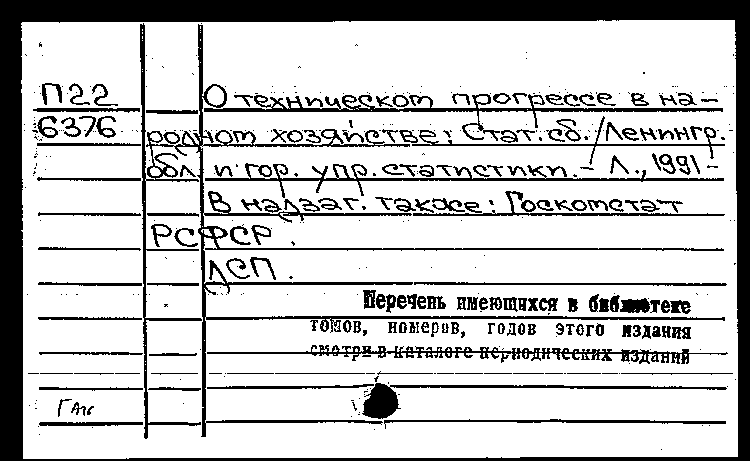 П22 О техническом прогрессе в на-
6376 родном хозяйстве: Стат. сб. / Ленингр.
обл. и гор. упр. статистики. – Л., 1991 –
В надзаг. также: Госкомстат
РСФСР.
ДСП.
Перечень имеющихся в библиотеке
томов, номеров, годов этого издания
смотри в каталоге периодических изданий